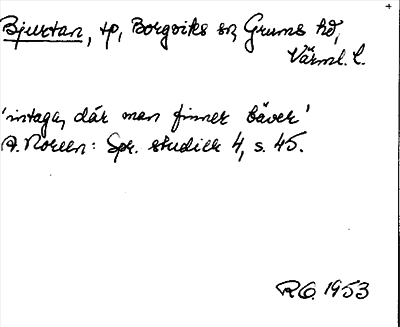 Bjurtan, tp, Borgviks sn, Grums hd,
Värml. l.
'intaga, där man finner bäver'
A. Noreen: Spr. studier 4, s. 45.
R.O. 1953